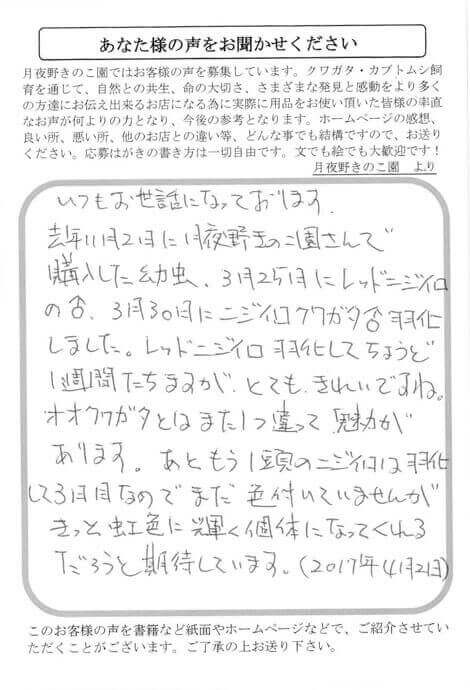 あなた様の声をお聞かせください
月夜野きのこ園ではお客様の声を募集しています。クワガタ・カブトムシ飼
育を通じて、自然との共生、命の大切さ、さまざまな発見と感動をより多く
の方達にお伝え出来るお店になる為に実際に用品をお使い頂いた皆様の率直
なお声が何よりの力となり、今後の参考となります。ホームページの感想、
良い所、悪い所、他のお店との違い等、どんな事でも結構ですので、お送り
ください。応募はがきの書き方は一切自由です。文でも絵でも大歓迎です！
月夜野きのこ園　より
いつもお世話になっております。
去年11月2日に月夜野きのこ園さんで
購入した幼虫、3月25日にレッドニジイロ
の♂、3月30日にニジイロクワガタ♂羽化
しました。レッドニジイロ羽化してちょうど
1週間たちますが、とても、きれいですね。
オオクワガタとはまた1つ違って魅力が
あります。あともう1頭のニジイロは羽化
して3日目なのでまだ色付いていませんが
きっと虹色に輝く個体になってくれる
だろうと期待しています。(2017年4月2日)
このお客様の声を書籍など紙面やホームページなどで、ご紹介させてい
ただくことがございます。ご了承の上お送り下さい。